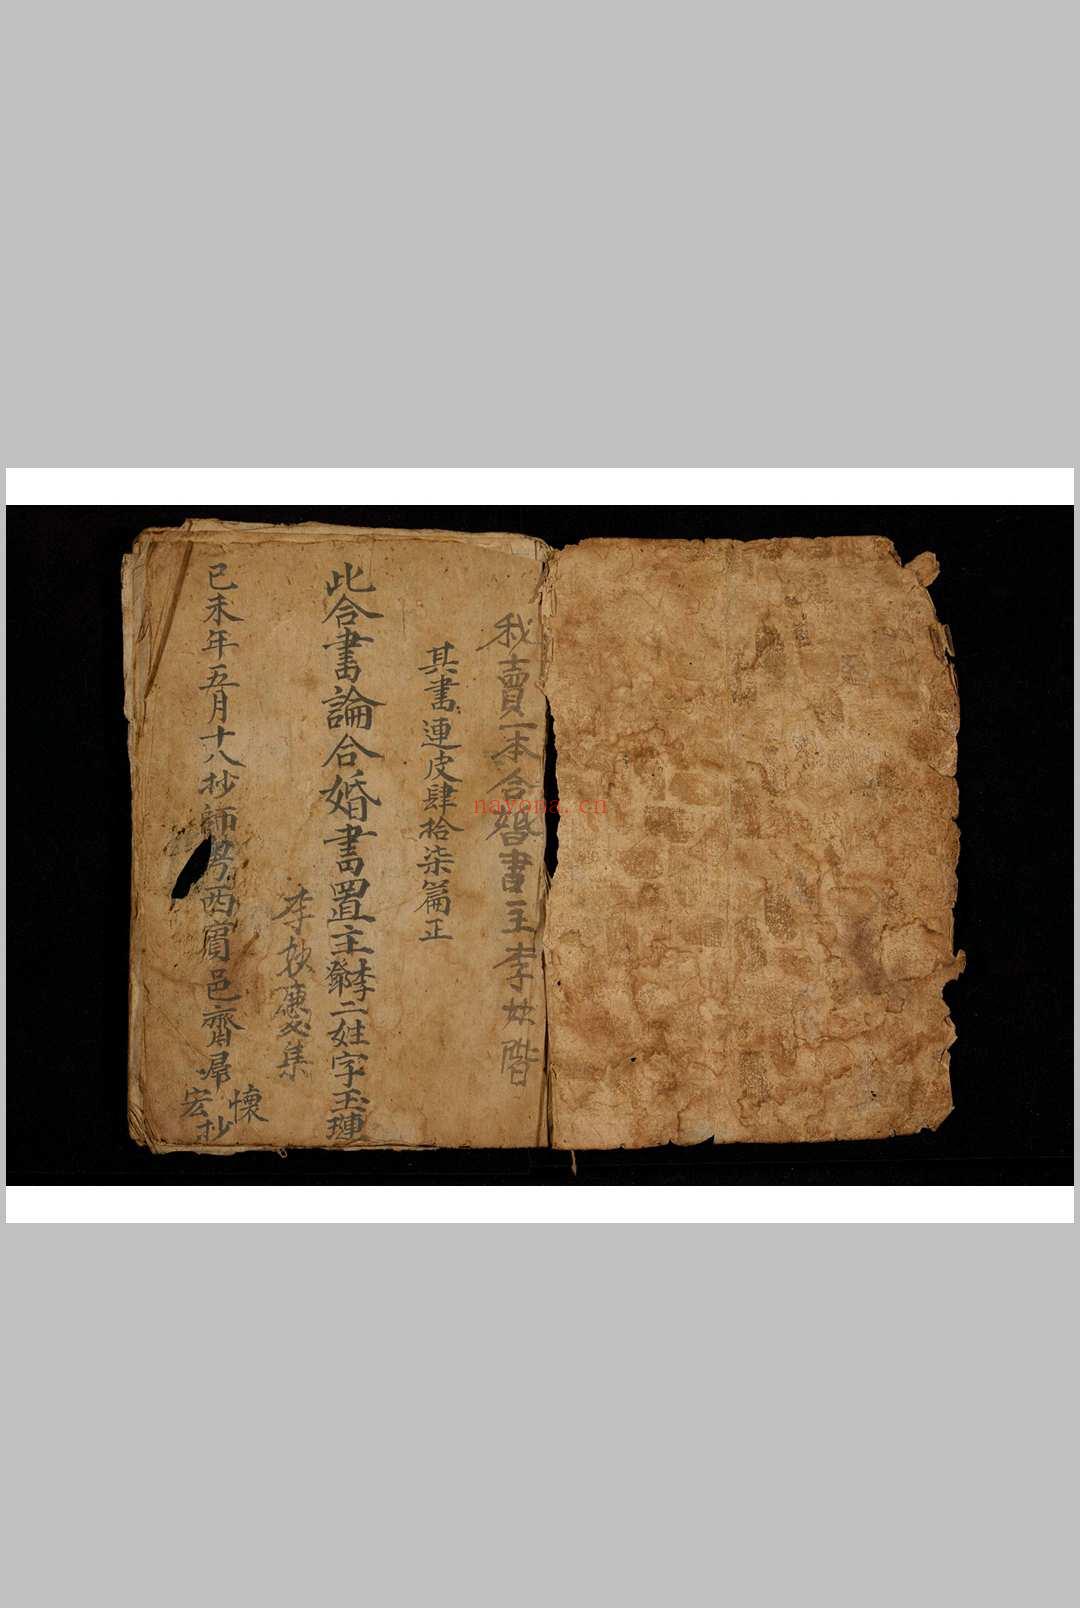 我賣一本合婚書主李妹階
其書連皮肆拾柒篇正
此合書論合婚書置主李鄧二姓字玉璉
李 集
己未年五月十八抄師 西賓邑齊 懷宏抄
nayona.cn